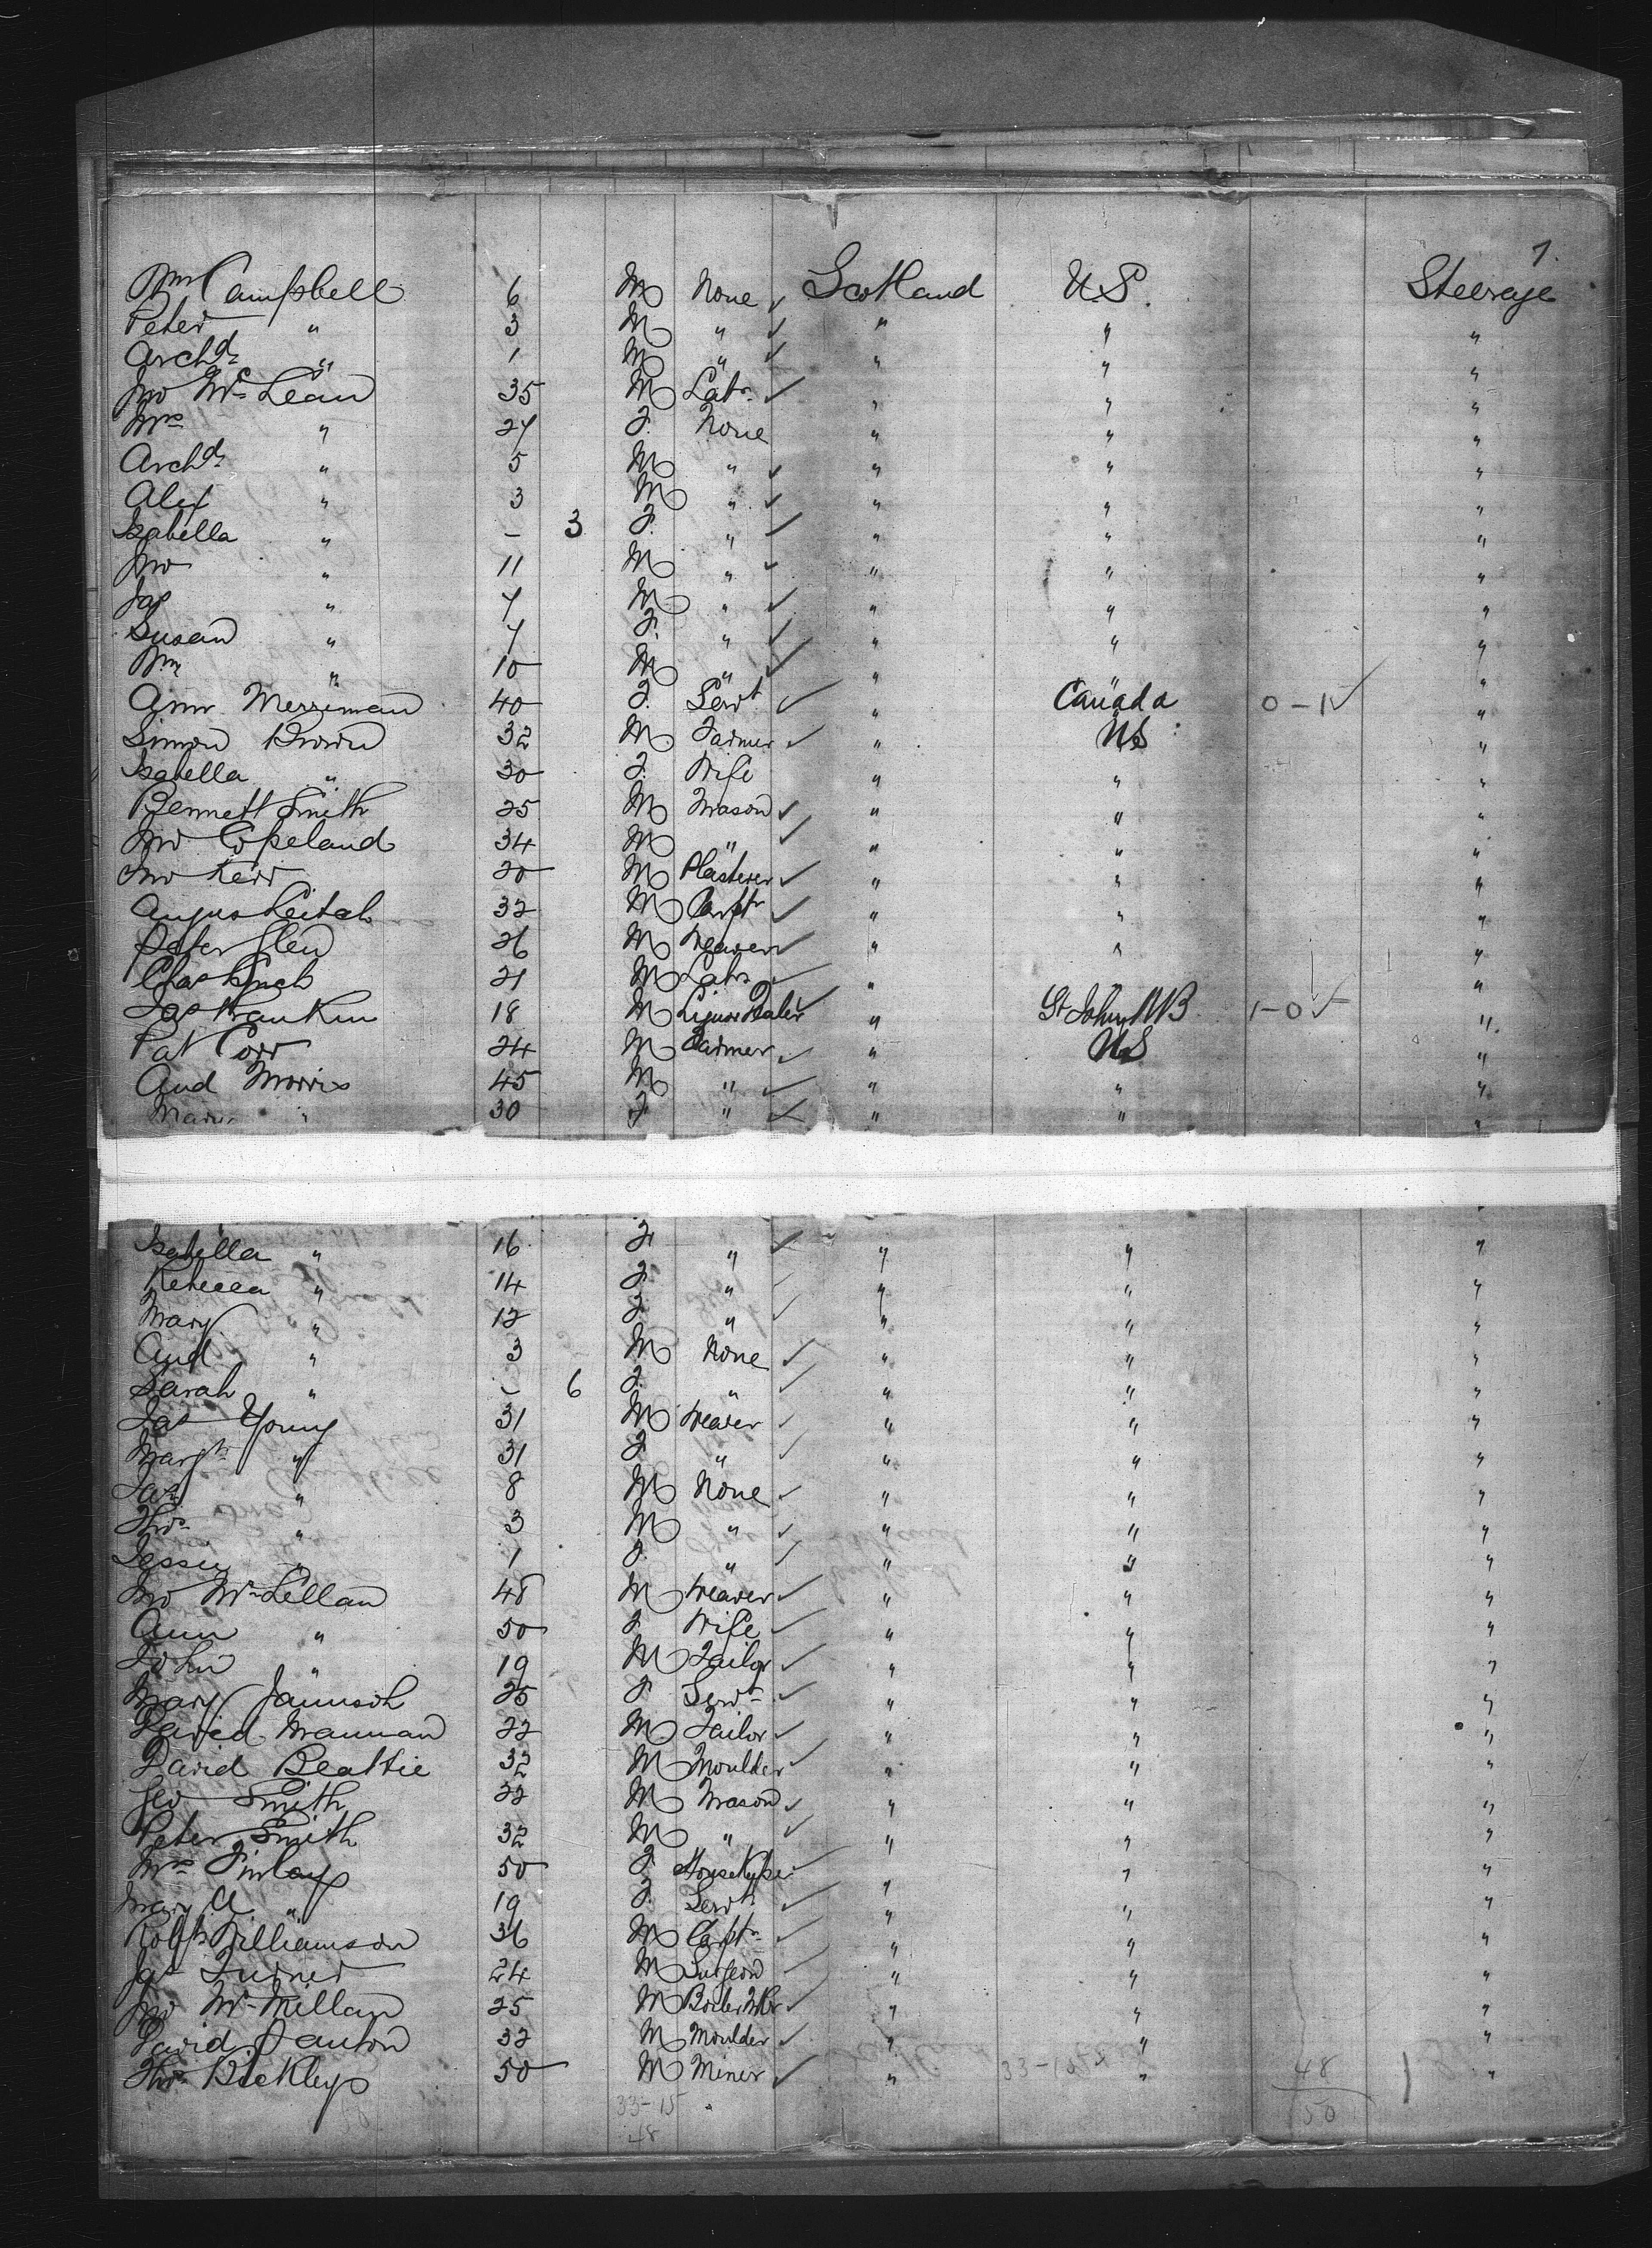 7.
Wm Campbell 6 M None ✓ Scotland U.S. Steerage
Peter " 3 M " ✓ " " "
Archd " 1 M " ✓ " " "
Jno McLean 35 M Labr ✓ " " "
Mrs " 27 F. None " " "
Archd " 5 M " ✓ " " "
Alex " 3 M " ✓ " " "
Isabella " – 3 F. " ✓ " " "
Jno " 11 M " ✓ " " "
Jas " 7 M " ✓ " " "
Susan " 7 F. " ✓ " " "
Wm " 10 M " ✓ " " "
Ann Merriman 40 F. Servt ✓ " Canada 0-1 ✓ "
Simon Brown 32 M Farmer ✓ " US "
Isabella " 30 F. Wife " " "
Bennett Smith 25 M Mason ✓ " " "
Jno Copeland 34 M " ✓ " " "
Jno Kerr 20 M Plasterer ✓ " " "
Angus Leitch 32 M Carptr ✓ " " "
Peter Glen 26 M Weaver ✓ " " "
Chas Lynch 21 M Labr ✓ " "
Jas Frankin 18 M Liquor Dealer ✓ " St John NB 1-0 ✓ "
Pat Corr 24 M Farmer ✓ US "
And Morris 45 M " ✓ " " "
Mary " 30 F " ✓ " " "
Isabella " 16 F " ✓ " " "
Rebecca " 14 F " ✓ " " "
Mary " 12 F " ✓ " " "
And " 3 M None ✓ " " "
Sarah " – 6 F. " ✓ " " "
Jas Young 31 M Weaver ✓ " " "
Margt " 31 F " ✓ " " "
Jas " 8 M None ✓ " " "
Thos " 3 M " ✓ " " "
Jessie " 1 F. " ✓ " " "
Jno McLellan 48 M Weaver ✓ " " "
Ann " 50 F Wife ✓ " " "
John " 19 M Tailor ✓ " " "
Mary Jamison 25 F Servt ✓ " " "
David Mannan 22 M Tailor ✓ " " "
David Beattie 32 M Moulder ✓ " " "
Geo Smith 22 M Mason ✓ " " "
Peter Smith 32 M " ✓ " " "
Mrs Finlay 50 F HouseKpr ✓ " " "
Mary A " 19 F. Servt ✓ " " "
Robt Williamson 36 M Carptr ✓ " " "
Jas Turner 24 M Surgeon ✓ " " "
Jno McMillan 25 M Boiler Mkr ✓ " " "
David Danton 32 M Moulder ✓ " " "
Thos Bickley 50 M Miner ✓ " " 48 "
33-15 50
48